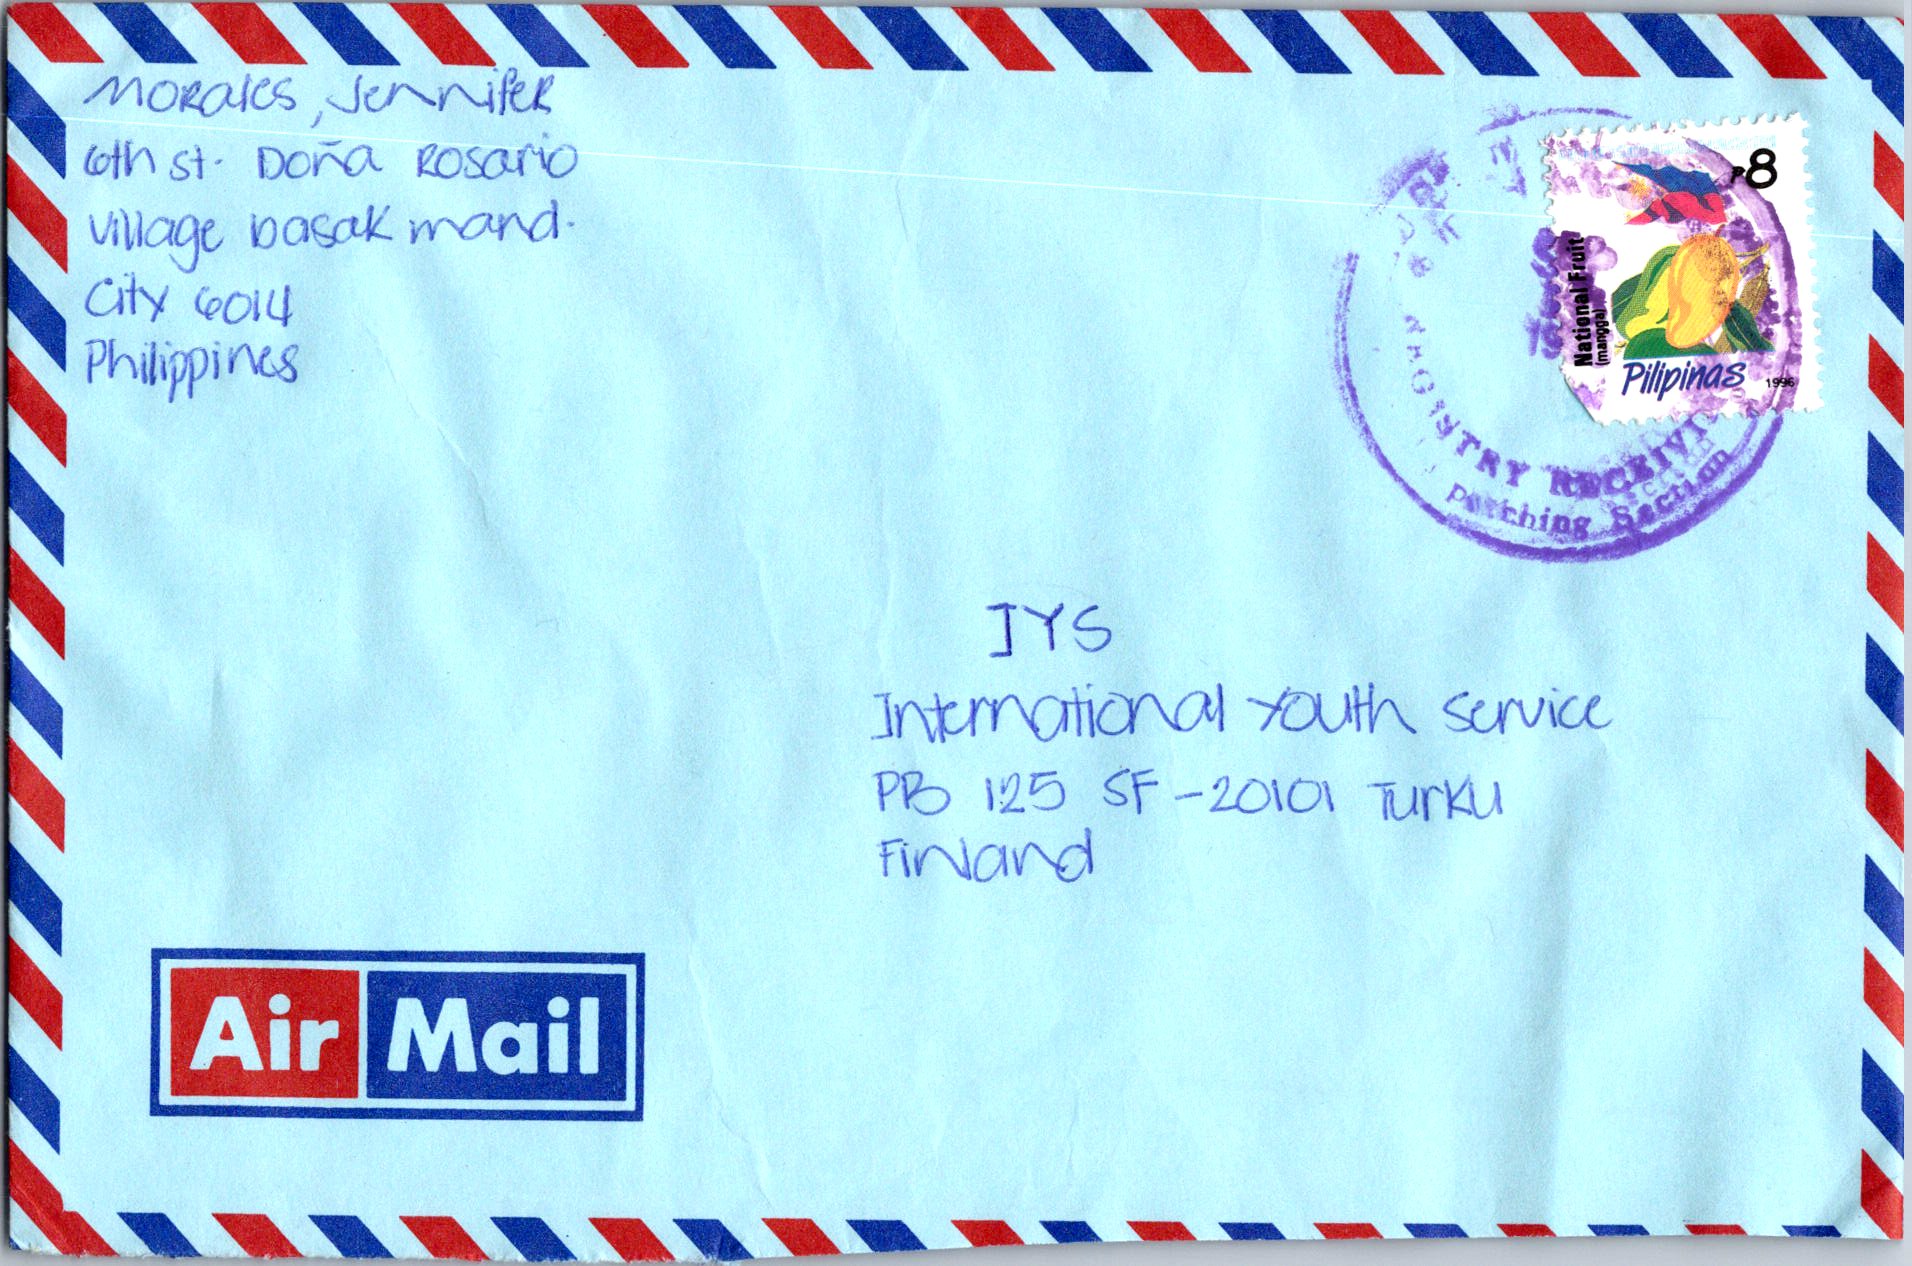 Morales, Jennifer
6th st. Doña Rosario
Village basak mand.
City 6014
Philippines
₱8
National Fruit
(mangga)
Pilipinas 1996
REGISTRY RECEIVI
Section
IYS
International Youth Service
PB 125 SF-20101 Turku
Finland
Air Mail